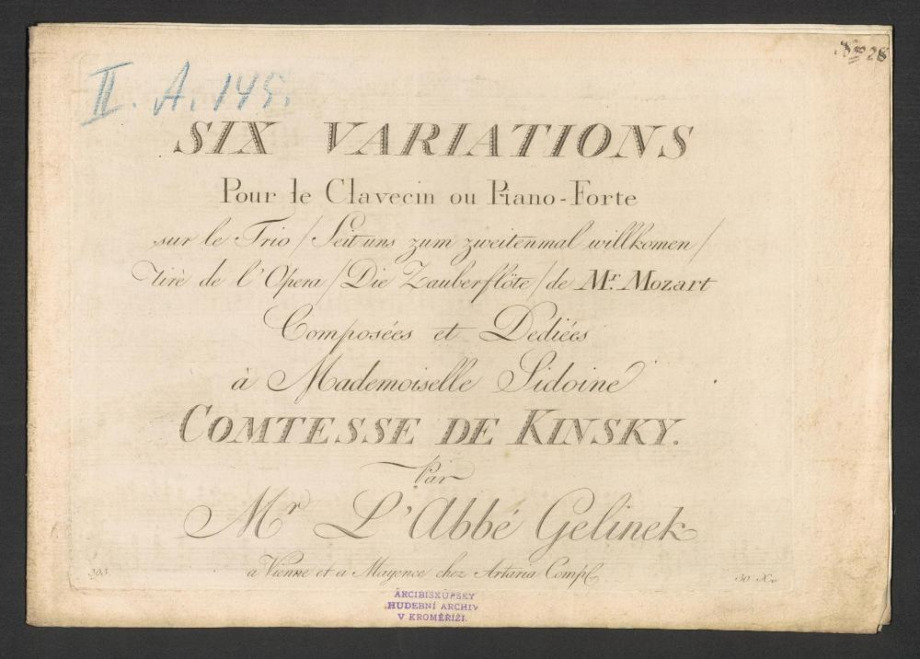 No 28
II. A. 145.
SIX VARIATIONS
Pour le Clavecin ou Piano-Forte
sur le Trio / Seit uns zum zweitenmal willkomen /
tirè de l'Opera / Die Zauberflöte / de Mr. Mozart
Composées et Dediées
à Mademoiselle Sidoine
COMTESSE DE KINSKY.
Par
Mr L'Abbé Gelinek
a Vienne et a Mayence chez Artaria Comp.
30 X.
ARCIBISKUPSKÝ
HUDEBNÍ ARCHIV
V KROMĚŘÍŽI.